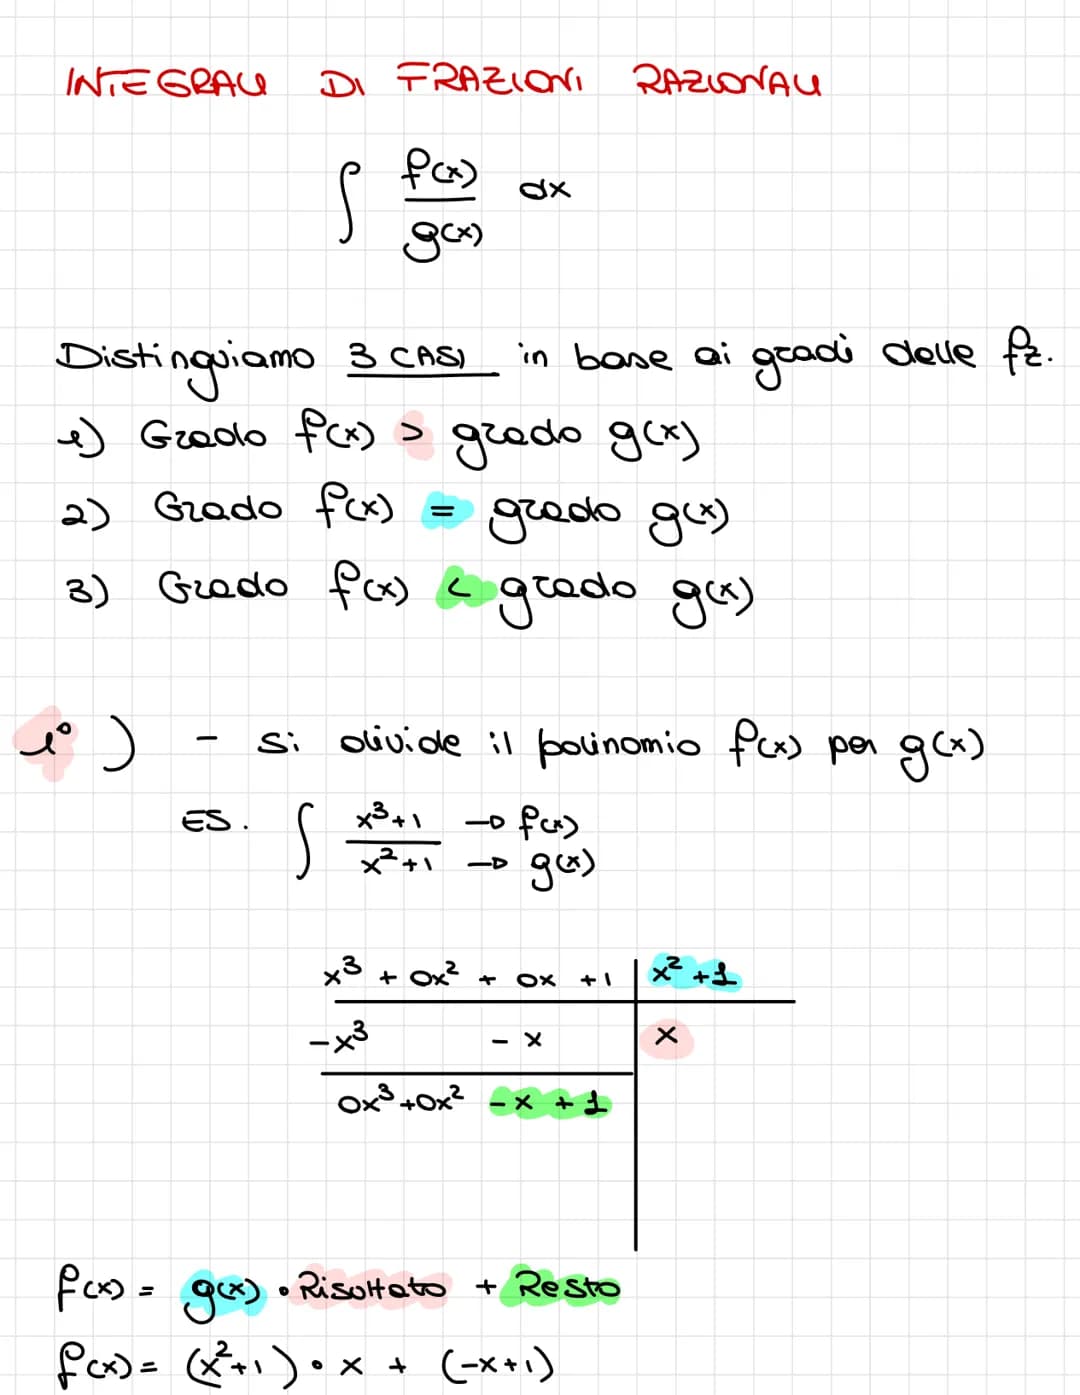 INTEGRALI DI FRAZIONI RAZIONALI
∫ f(x)/g(x) dx
Distinguiamo 3 CASI in base ai gradi delle fz.
1) Grado f(x) > grado g(x)
2) Grado f(x) = grado g(x)
3) Grado f(x) < grado g(x)
1°) - si divide il polinomio f(x) per g(x)
ES. ∫ x³+1 → f(x)
x²+1 → g(x)
x³ + 0x² + 0x +1 | x² +1
-x³ - x | x
0x³+0x² - x + 1
f(x) = g(x) • Risultato + Resto
f(x) = (x²+1) • x + (-x+1)